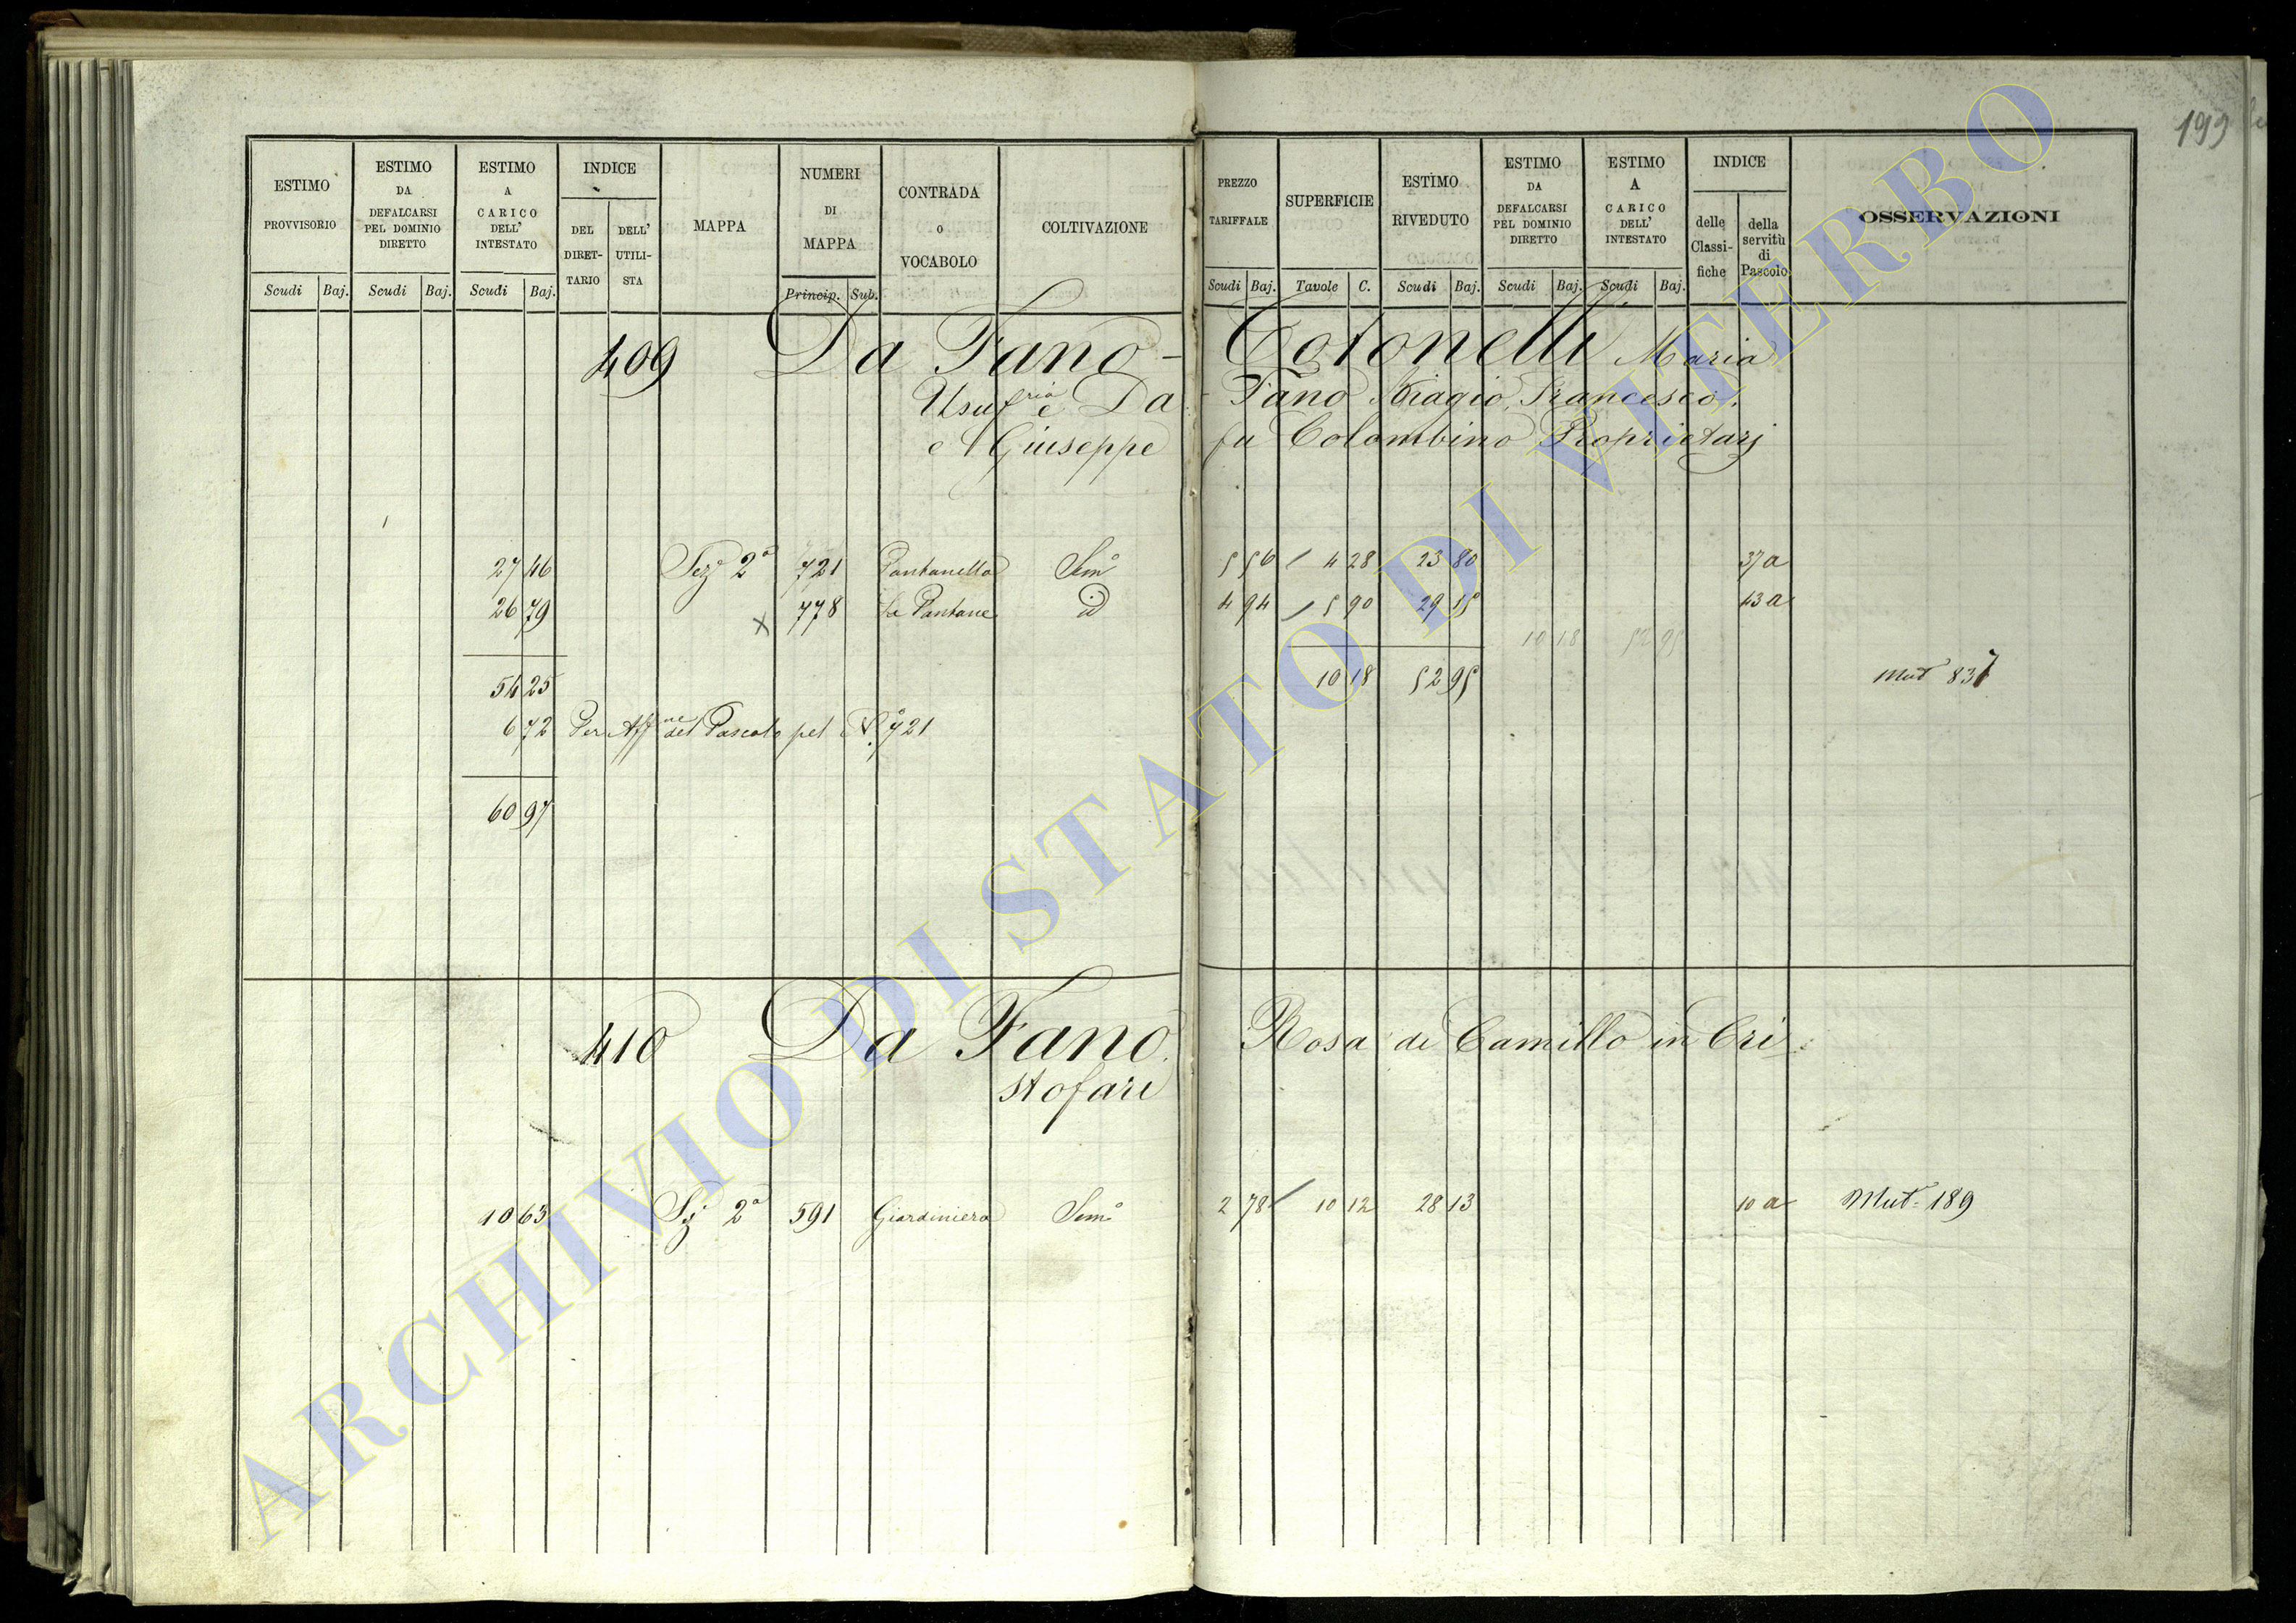 199
ESTIMO PROVVISORIO
ESTIMO DA DEFALCARSI PEL DOMINIO DIRETTO
ESTIMO A CARICO DELL' INTESTATO
INDICE
DEL DIRET-TARIO
DELL' UTILI-STA
MAPPA
NUMERI DI MAPPA
CONTRADA O VOCABOLO
COLTIVAZIONE
PREZZO TARIFFALE
SUPERFICIE
ESTIMO RIVEDUTO
ESTIMO DA DEFALCARSI PEL DOMINIO DIRETTO
ESTIMO A CARICO DELL' INTESTATO
INDICE
delle Classi-fiche
della servitù di Pascolo
OSSERVAZIONI
Scudi Baj. Scudi Baj. Scudi Baj. Princip. Sub. Scudi Baj. Tavole C. Scudi Baj. Scudi Baj. Scudi Baj.
409 Da Fano - Colonelli Maria
Usufria e Da Fano Biagio, Francesco,
e Giuseppe fu Colombino Proprietarj
27 46 Sez 2a 721 Pantanella Semo 5 56 4 28 23 80 37 a
26 79 x 778 Le Pantane id 4 94 5 90 29 15 43 a
10 18 52 95
54 25 10 18 52 95 Mut 837
6 72 Per Affne del Pascolo pel No 721
60 97
410 Da Fano Rosa di Camillo in Cri=
stofari
10 63 Sez 2a 591 Giardiniera Semo 2 78 10 12 28 13 10 a Mut. 189
ARCHIVIO DI STATO DI VITERBO